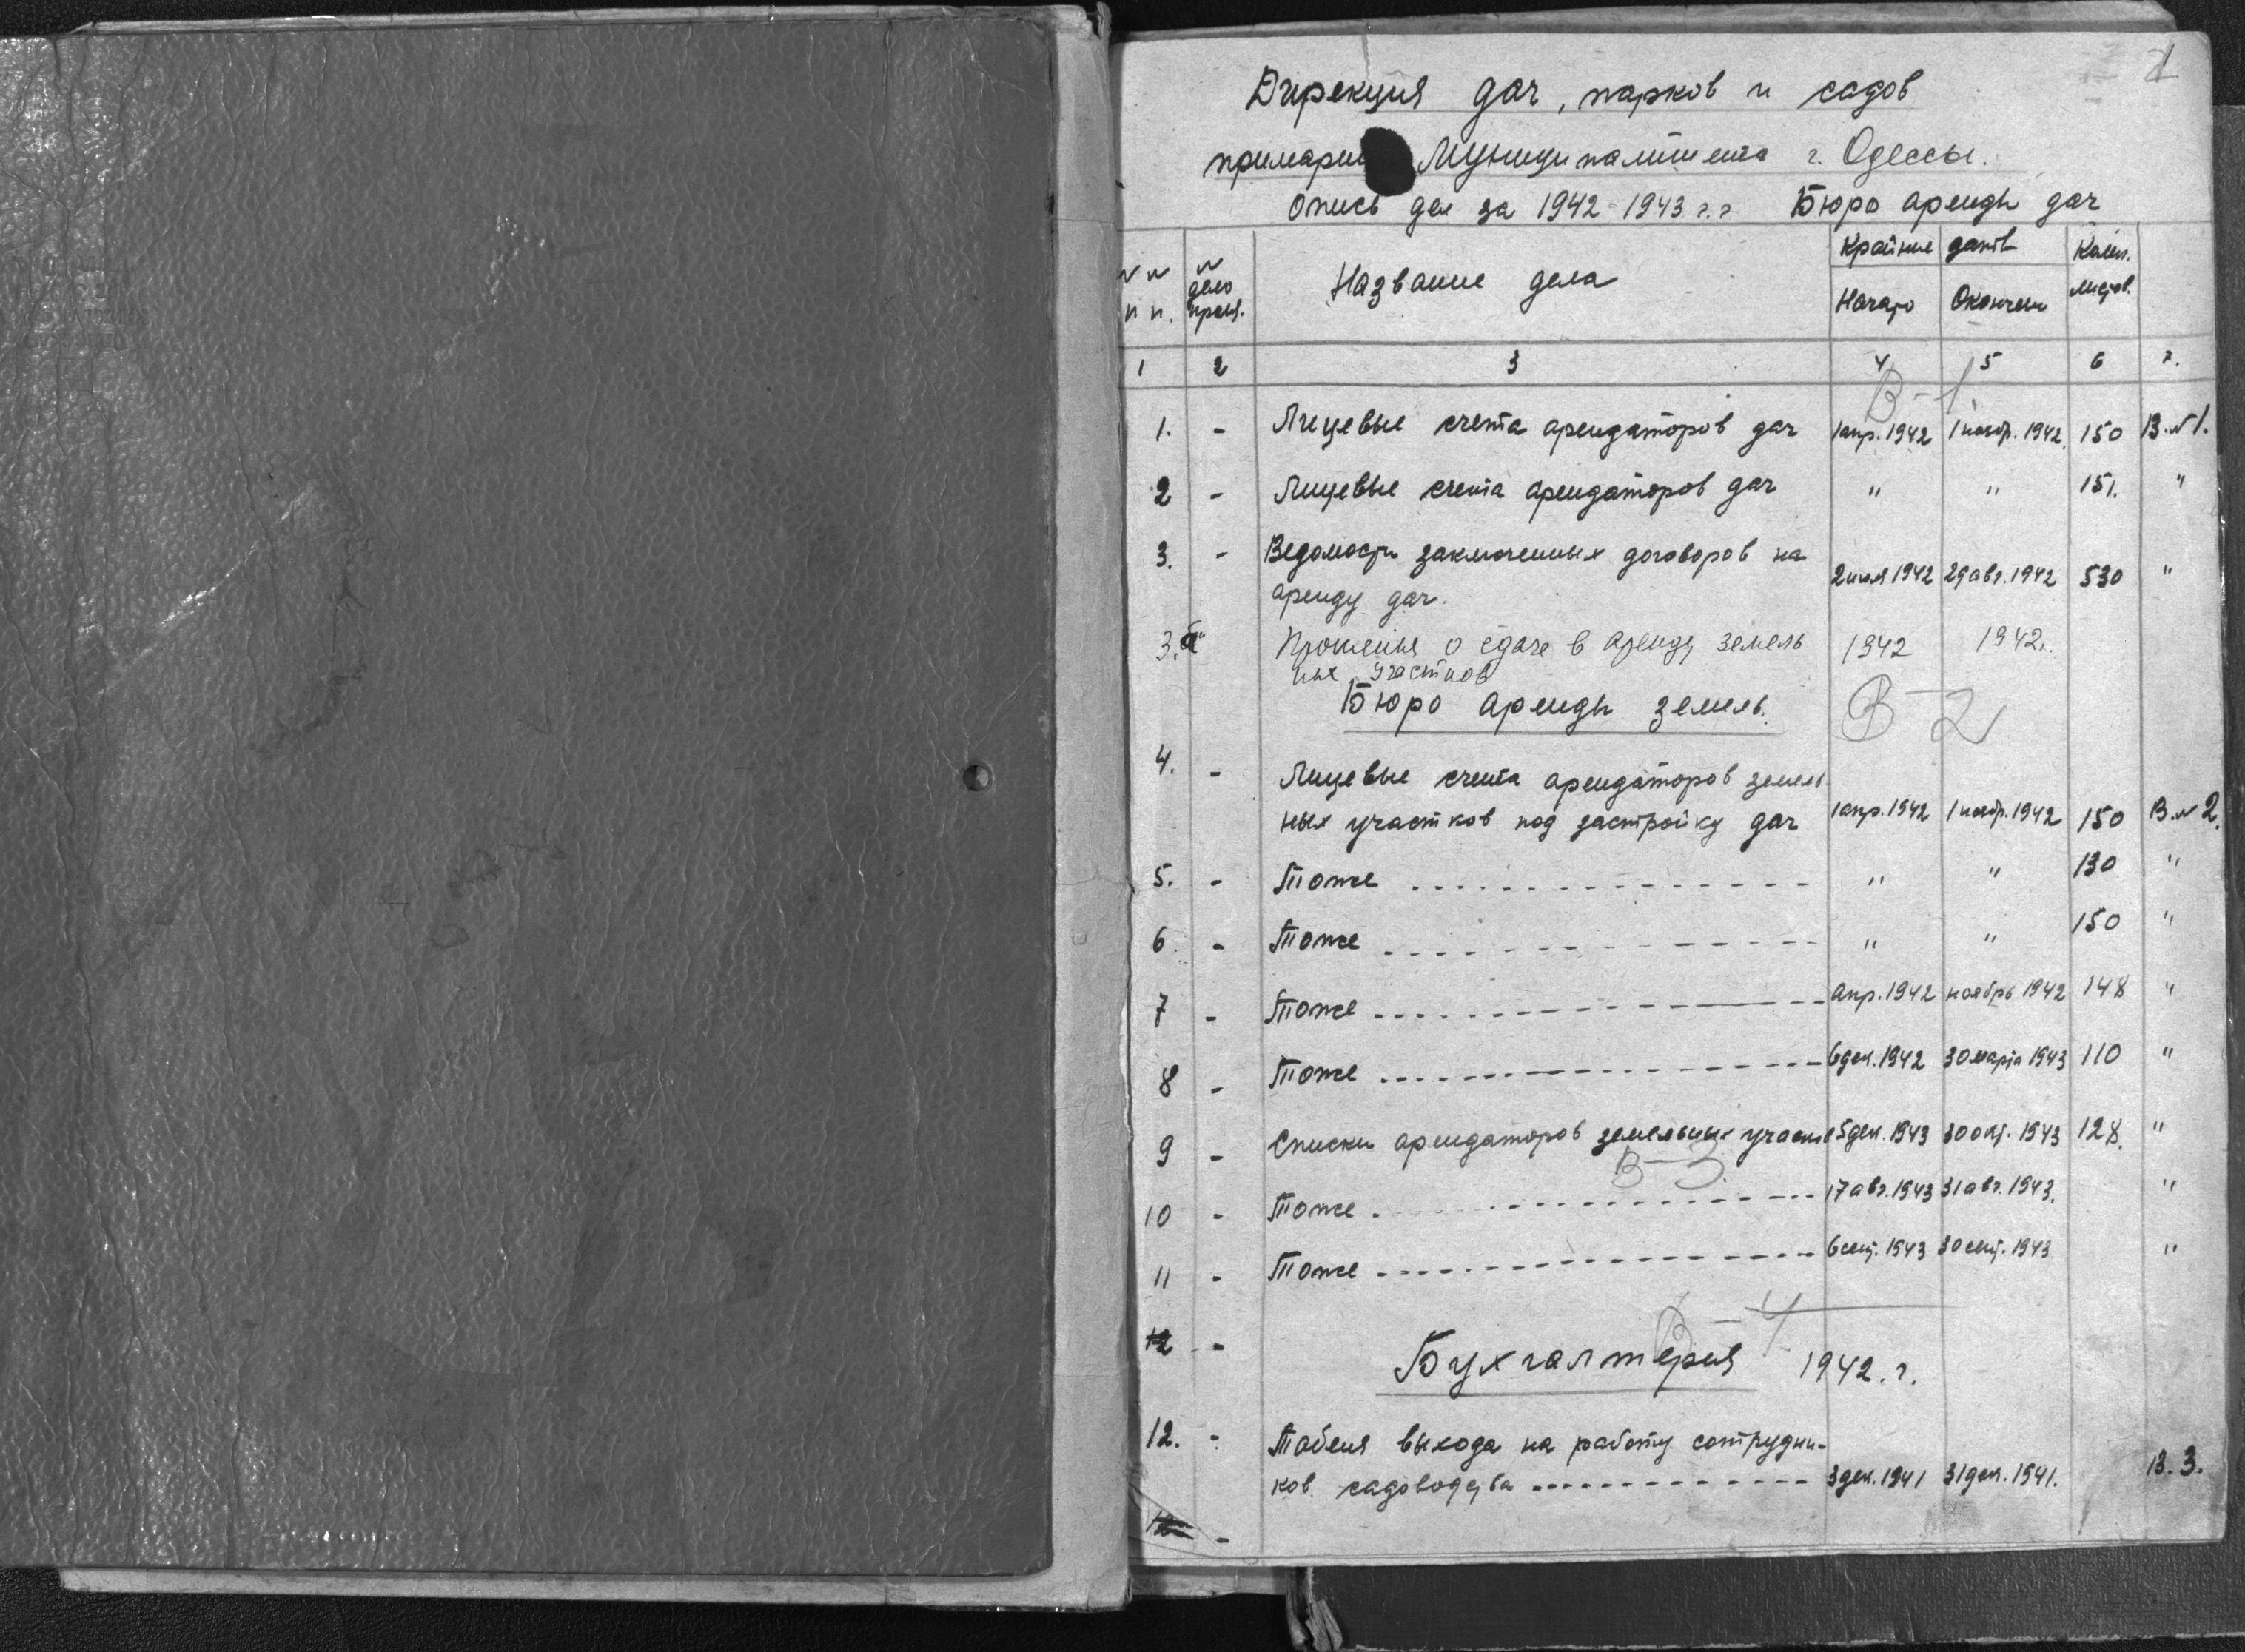 1
Дирекция дач, парков и садов
примарии Муниципалитета г. Одессы.
Опись дел за 1942-1943 г.г. Бюро аренды дач
№№ п п.
№ дело произ.
Название дела
Крайние даты
Начало
Окончен
Колич. листов.
1 2 3 4 5 6 7.
В-1
1. - Лицевые счета арендаторов дач 1 апр. 1942 1 нояб. 1942 150 В.№1.
2 - Лицевые счета арендаторов дач " " 151. "
3. - Ведомости заключенных договоров на
аренду дач. 29 авг. 1942 530 "
3. Прошения о сдаче в аренду земель 1942 1942.
ных участков
Бюро аренды земель. В-2
4. - Лицевые счета арендаторов земель
ных участков под застройку дач 1 апр. 1942 1 нояб. 1942 150 В.№2.
5. - Тоже " " 130 "
6. - Тоже " " 150 "
7 - Тоже апр. 1942 ноябрь 1942 148 "
8 - Тоже 6 дек. 1942 30 марта 1943 110 "
9 - Списки арендаторов земельных участк 5 дек. 1943 30 окт. 1943 128. "
В-3.
10 - Тоже 17 авг. 1943 31 авг. 1943. "
11 - Тоже 6 сент. 1943 30 сент. 1943 "
В-4
12 - Бухгалтерия 1942. г.
12. - Табеля выхода на работу сотрудни-
ков садоводства 3 дек. 1941 31 дек. 1941. В.3.